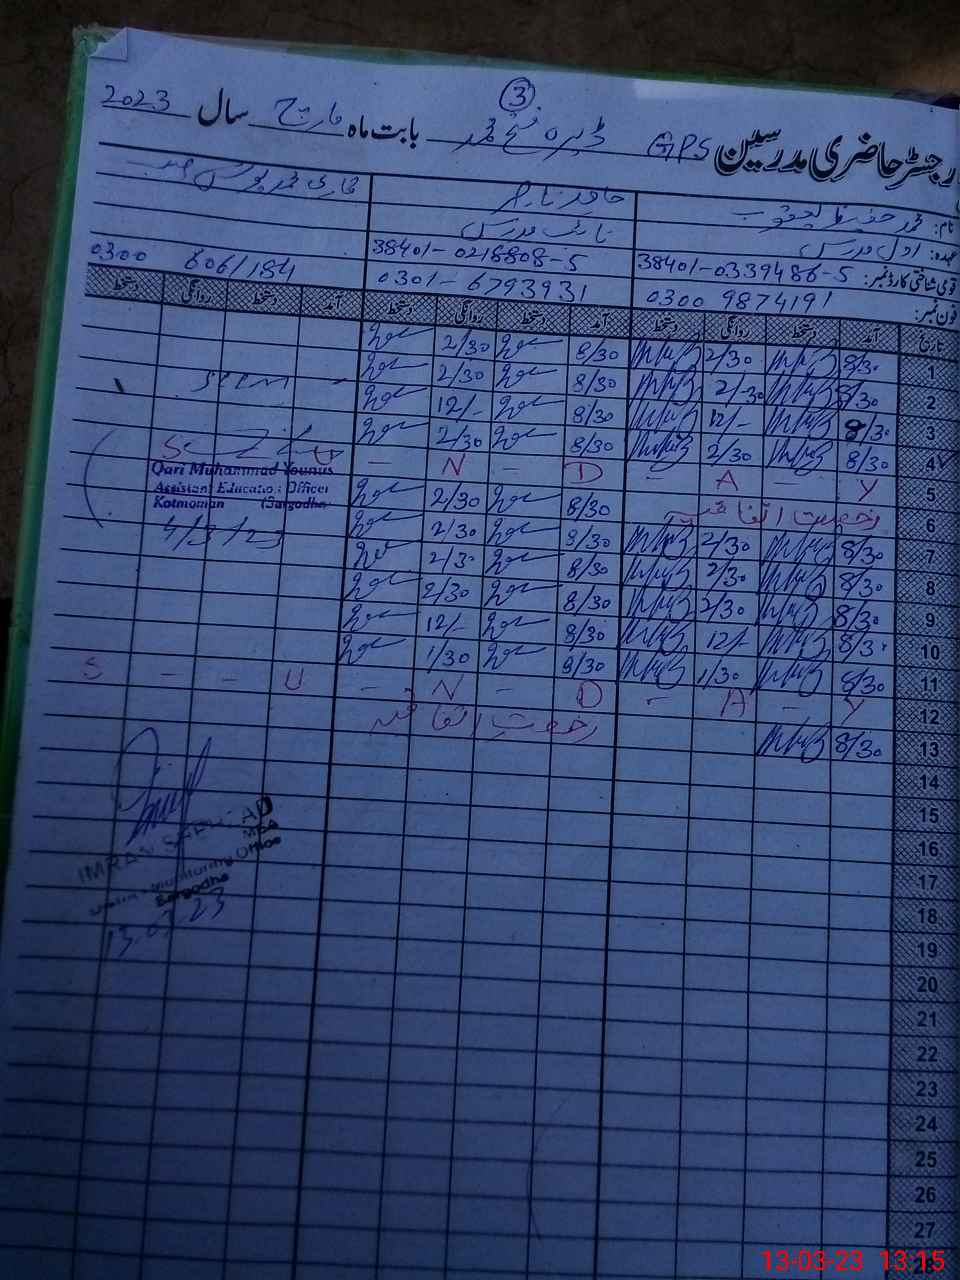 3
رجسٹر حاضری مدرسین GPS ڈیرہ فتح محمد بابت ماہ مارچ سال 2023
نام: محمد حفیظ یعقوب حامد ناصر قاری محمد یونس صاحب
عہدہ: اول مدرس نائب مدرس
قومی شناختی کارڈ نمبر: 38401-0339486-5 38401-0216808-5
فون نمبر: 0300 9874191 0301-6793931 0300 606/184
تاریخ آمد دستخط روانگی دستخط آمد دستخط روانگی دستخط آمد دستخط روانگی دستخط
1 8/30 2/30 8/30 2/30
2 8/30 2/30 8/30 2/30
3 8/30 12/- 8/30 12/-
4 8/30 2/30 8/30 2/30
5 S U - N - D - A - Y
6 رخصت اتفاقیہ 8/30 2/30
7 8/30 2/30 8/30 2/30
8 8/30 2/30 8/30 2/30
9 8/30 2/30 8/30 2/30
10 8/30 12/- 8/30 12/-
11 8/30 1/30 8/30 1/30
12 S - - U - N - D - A - Y
13 8/30 رخصت اتفاقیہ
14
15
16
17
18
19
20
21
22
23
24
25
26
27
28
seen
Qari Muhammad Younus
Assistant Education Officer
Kotmoman (Sargodha)
4/3/23
IMRAN SAJJAD
MEA
Monitoring Office
Sargodha
13.03.23
13-03-23 13:15